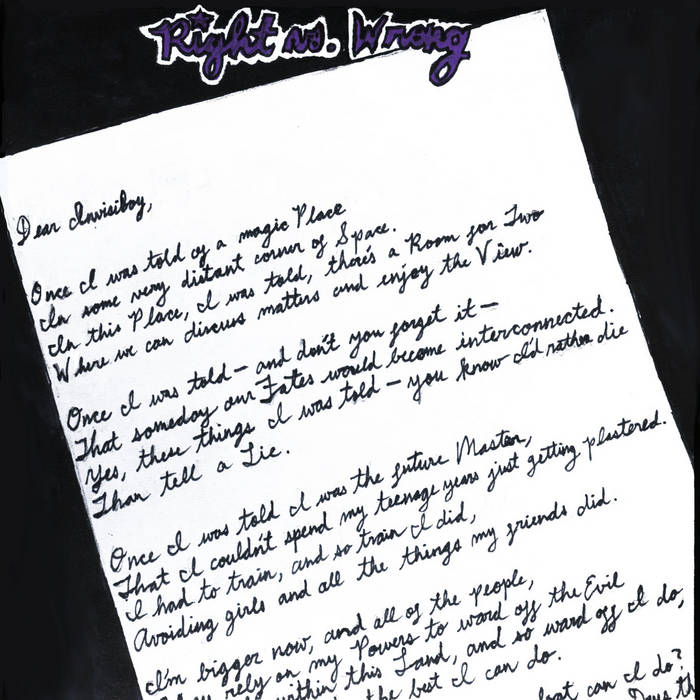 Right vs. Wrong
Dear Invisiboy,
Once I was told of a magic Place
In some very distant corner of Space.
In this Place, I was told, there's a Room for Two
Where we can discuss matters and enjoy the View.
Once I was told — and don't you forget it —
That someday our Fates would become interconnected.
Yes, these things I was told — you know I'd rather die
Than tell a Lie.
Once I was told I was the future Master,
That I couldn't spend my teenage years just getting plastered.
I had to train, and so train I did,
Avoiding girls and all the things my friends did.
I'm bigger now, and all of the people,
rely on my Powers to ward off the Evil
within this Land, and so ward off I do,
the best I can do.
what can I do?
Days th